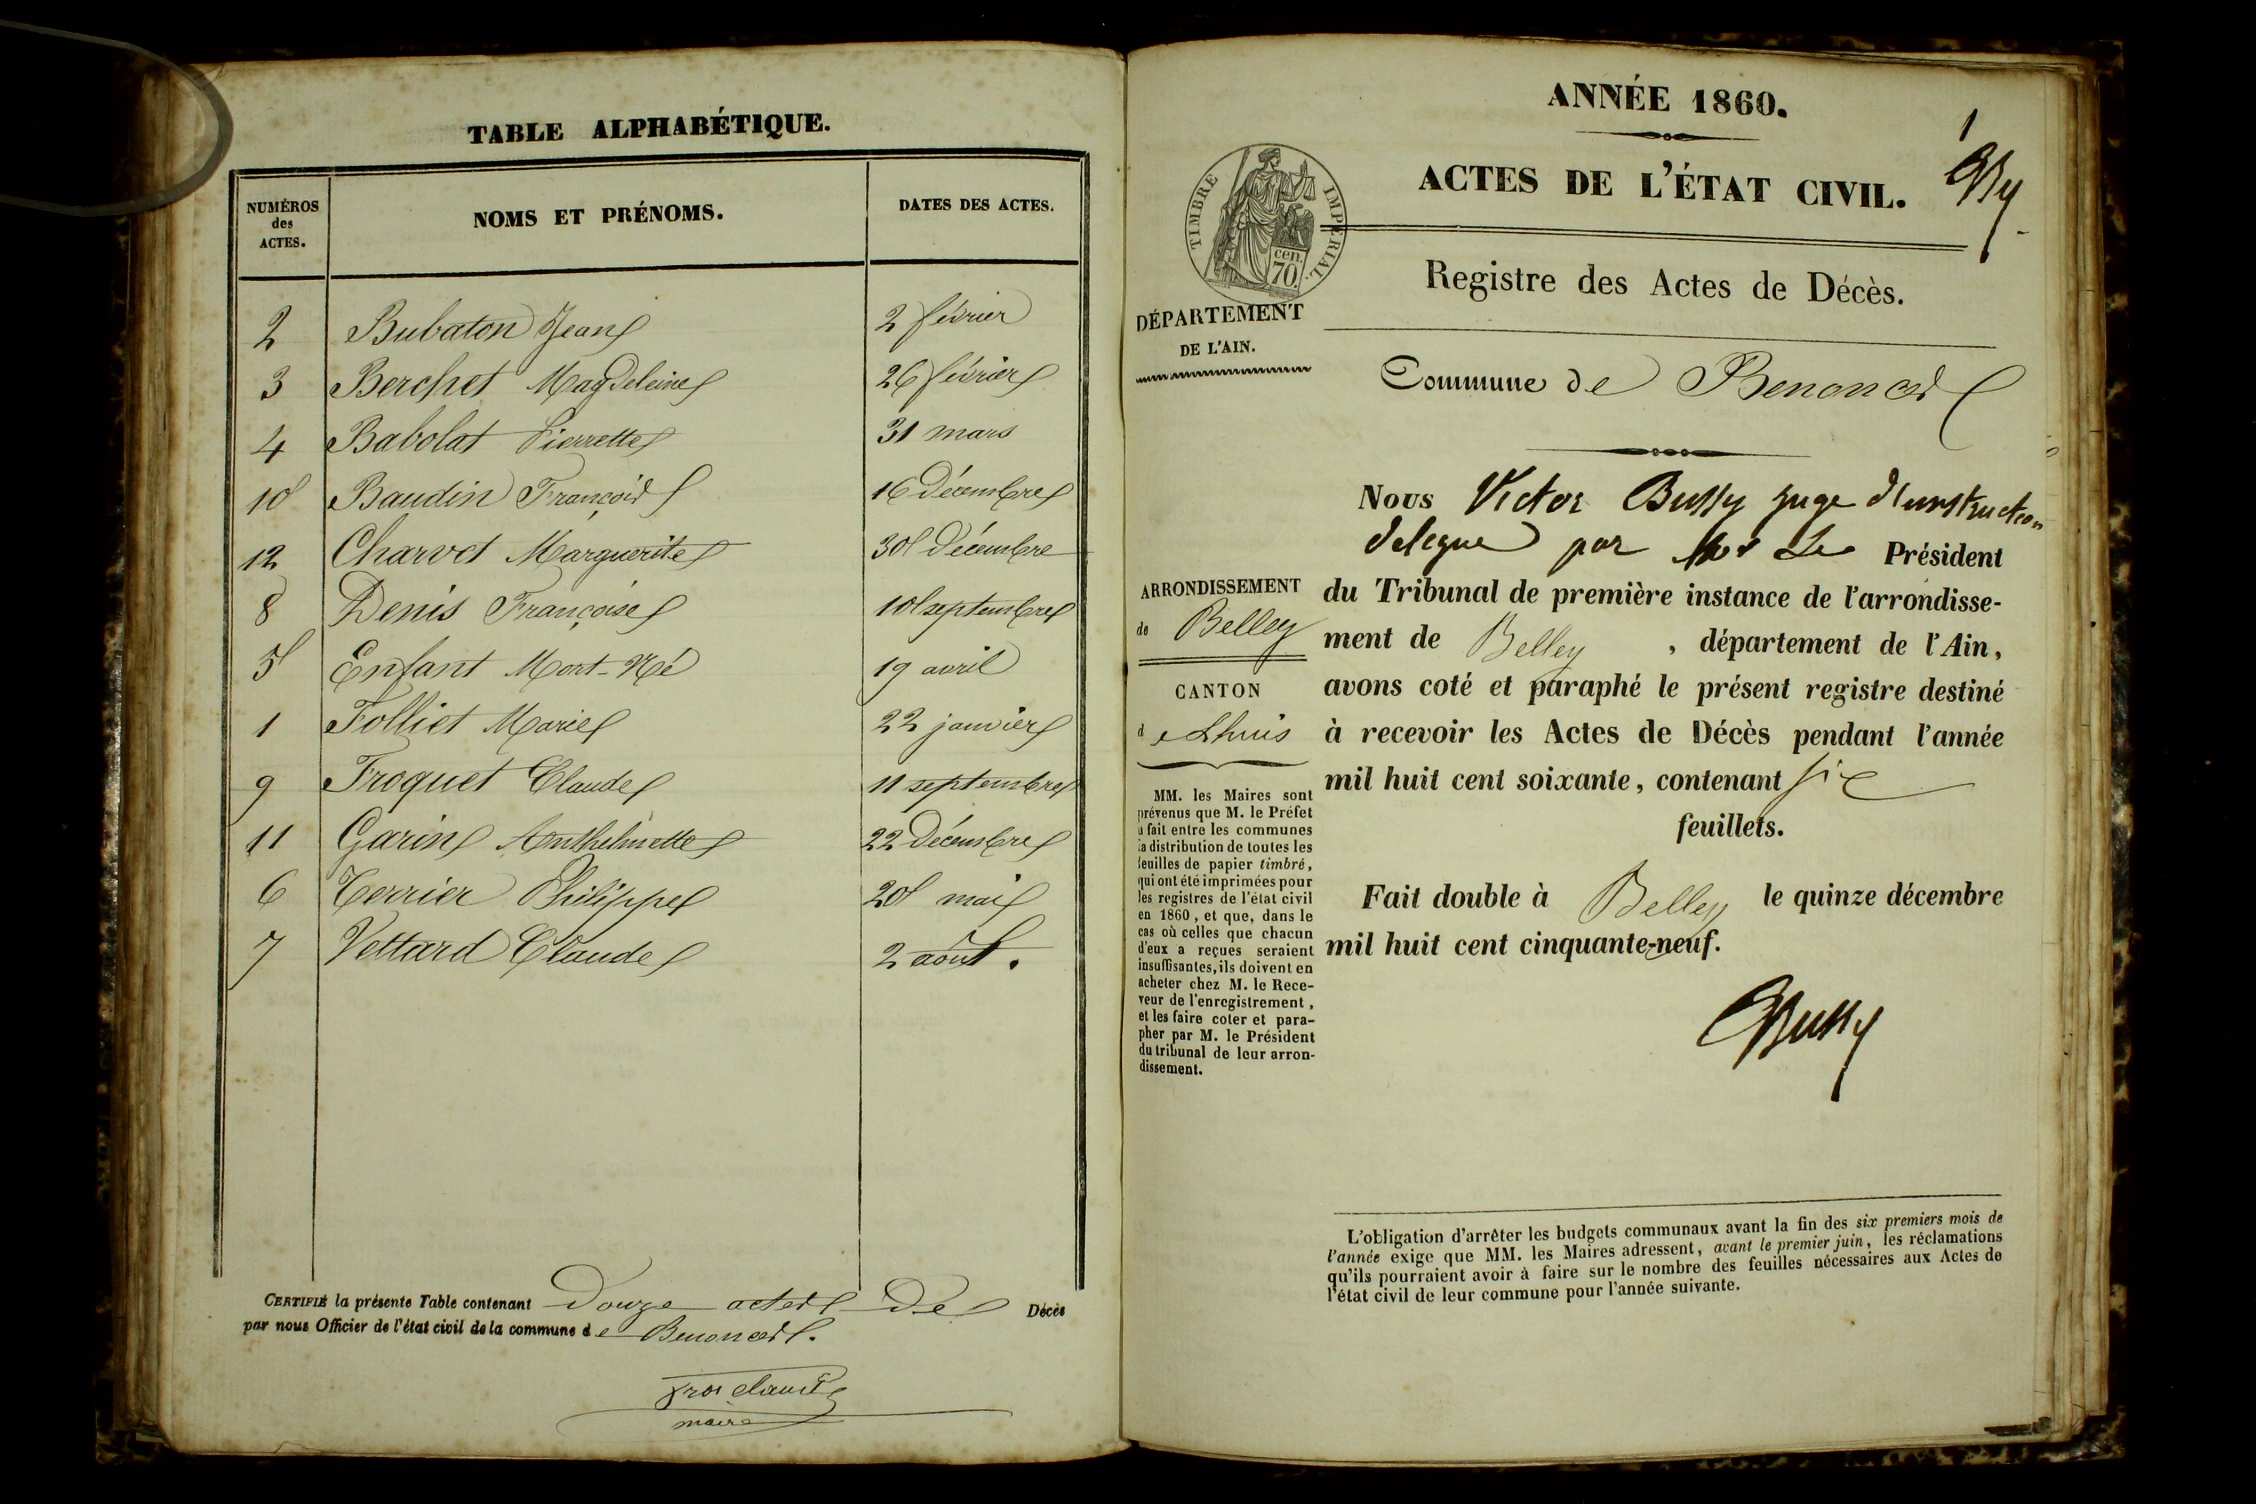 TABLE ALPHABÉTIQUE.
NUMÉROS des ACTES. NOMS ET PRÉNOMS. DATES DES ACTES.
2 Bubaton Jean 2 février
3 Berchet Magdeleine 26 février
4 Babolat Pierrette 31 mars
10 Baudin François 16 Décembre
12 Charvet Marguerite 30 décembre
8 Denis Françoise 10 septembre
5 Enfant Mort-Né 19 avril
1 Folliet Marie 22 janvier
9 Froquet Claude 11 septembre
11 Garin Anthelmette 22 Décembre
6 Terrier Philippe 20 mai
7 Vettard Claude 2 août.
CERTIFIÉ la présente Table contenant Douze actes De Décès
par nous Officier de l'état civil de la commune de Benonces.
maire
ANNÉE 1860.
1
ACTES DE L'ÉTAT CIVIL.
TIMBRE IMPÉRIAL.
cen.
70.
Registre des Actes de Décès.
DÉPARTEMENT
DE L'AIN.
Commune de Benonces
Nous Victor Bussy juge d'instruction
delegué par Mr Le Président
ARRONDISSEMENT
de Belley
CANTON
de Lhuis
du Tribunal de première instance de l'arrondisse-
ment de Belley, département de l'Ain,
avons coté et paraphé le présent registre destiné
à recevoir les Actes de Décès pendant l'année
mil huit cent soixante, contenant six
feuillets.
MM. les Maires sont
prévenus que M. le Préfet
a fait entre les communes
la distribution de toutes les
feuilles de papier timbré,
qui ont été imprimées pour
les registres de l'état civil
en 1860, et que, dans le
cas où celles que chacun
d'eux a reçues seraient
insuffisantes, ils doivent en
acheter chez M. le Rece-
veur de l'enregistrement,
et les faire coter et para-
pher par M. le Président
du tribunal de leur arron-
dissement.
Fait double à Belley le quinze décembre
mil huit cent cinquante-neuf.
Bussy
L'obligation d'arrêter les budgets communaux avant la fin des six premiers mois de
l'année exige que MM. les Maires adressent, avant le premier juin, les réclamations
qu'ils pourraient avoir à faire sur le nombre des feuilles nécessaires aux Actes de
l'état civil de leur commune pour l'année suivante.